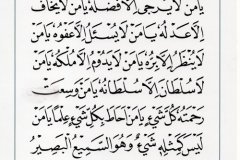 يَا مَنْ لَا يُرْجَى إِلَّا فَضْلُهُ يَا مَنْ لَا يُخَافُ
إِلَّا عَدْلُهُ يَا مَنْ لَا يُسْئَلُ إِلَّا عَفْوُهُ يَا مَنْ
لَا يُنْظَرُ إِلَّا بِرُّهُ يَا مَنْ لَا يَدُومُ إِلَّا مُلْكُهُ يَا مَنْ
لَا سُلْطَانَ إِلَّا سُلْطَانُهُ يَا مَنْ وَسِعَتْ
رَحْمَتُهُ كُلَّ شَيْءٍ يَا مَنْ أَحَاطَ بِكُلِّ شَيْءٍ عِلْمًا يَا مَنْ
لَيْسَ كَمِثْلِهِ شَيْءٌ وَهُوَ السَّمِيعُ الْبَصِيرُ